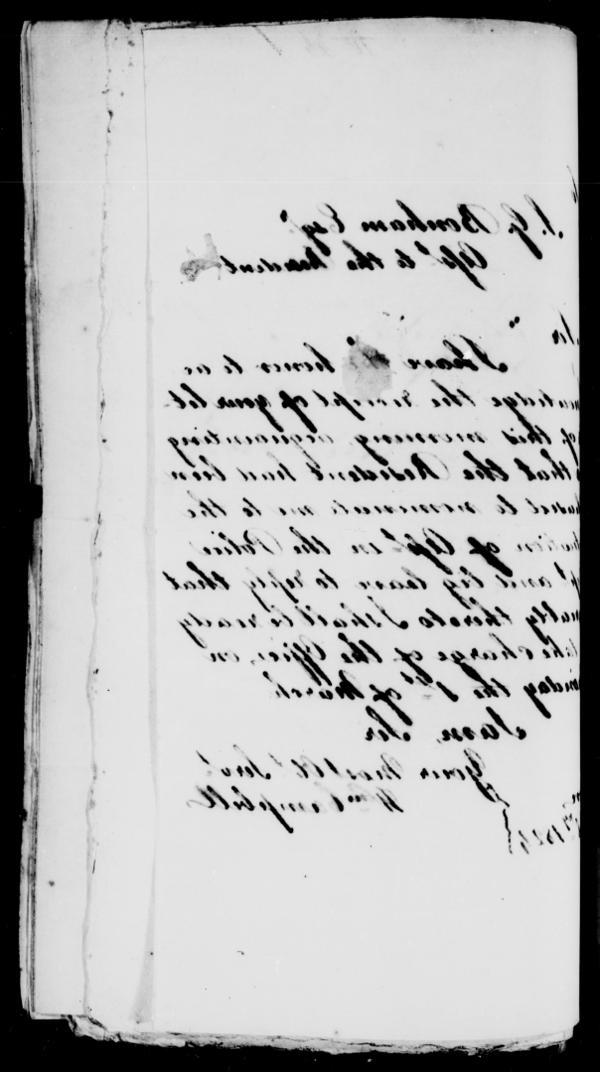 S. G. Bonham Esqr.
Asst. to the Resident
Sir
I have the honor to ac
knowledge the receipt of your let
of this morning acquainting
that the Resident had been
pleased to nominate me to the
situation of Asst. in the Police
and beg leave to reply that
thereto I shall be ready
take charge of the Office, on
the 1st. of March
I am, Sir
Your Most Obt. Servt.
Wm. Campbell